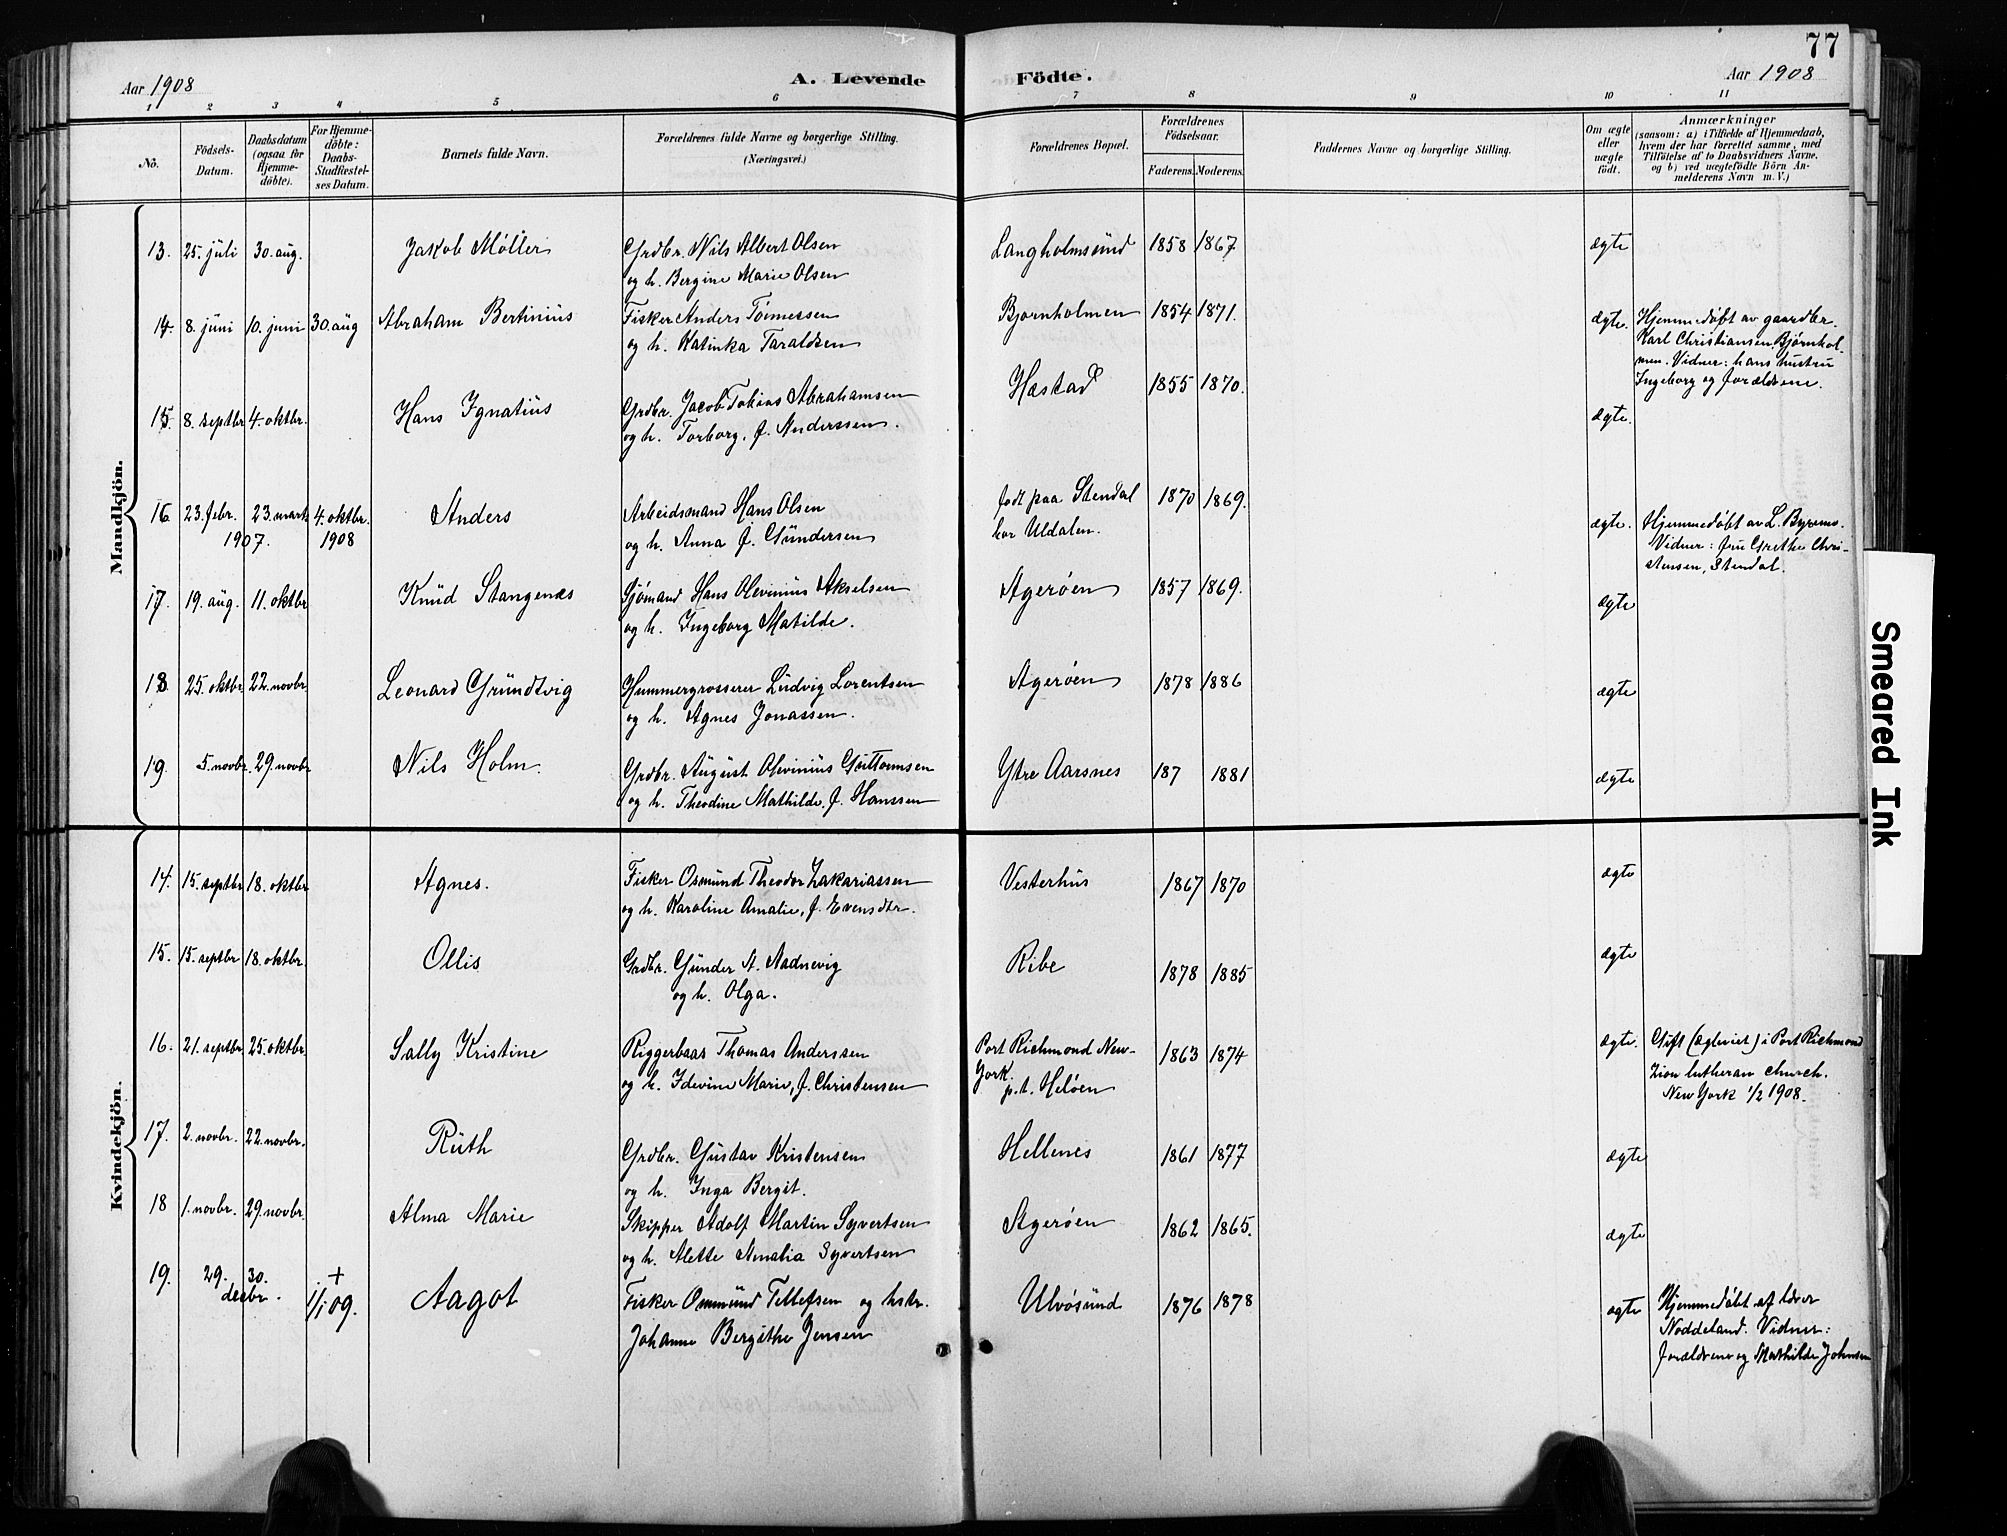 77
Aar 1908
A. Levende Födte.
Aar 1908
1 2 3 4 5 6 7 8 9 10 11
No.
Födsels-Datum.
Daabsdatum (ogsaa for Hjemme-döbte).
For Hjemme-döbte: Daabs-Stadfæstel-ses Datum.
Barnets fulde Navn.
Forældrenes fulde Navne og borgerlige Stilling.
(Næringsvei.)
Forældrenes Bopæl.
Forældrenes Födselsaar.
Faderens. Moderens.
Faddernes Navne og borgerlige Stilling.
Om ægte eller uægte födt.
Anmærkninger
(saasom: a) i Tilfælde af Hjemmedaab, hvem der har forrettet samme, med Tilföielse af to Daabsvidners Navne, og b) ved uægtefödte Börn An-melderens Navn m. V.)
Mandkjön.
13. 25. juli 30. aug. Jakob Møller Grdbr. Nils Albert Olsen Langholmsund 1858 1867 ægte
og h. Bergine Marie Olsen
14. 8. juni 10. juni 30. aug Abraham Bertinius Fisker Anders Tönnessen Bjornholmen 1854 1871. ægte. Hjemmedøbt av gaardbr.
og h. Katinka Taraldsen Karl Christiansen, Bjørnhol-
men. Vidner: hans hustru
Ingeborg og forældrene.
15. 8. septbr 4. oktbr. Hans Ignatius Grdbr. Jacob Tobias Abrahamsen Hæstad 1855 1870. ægte.
og h. Torborg, f. Anderssen.
16. 23. febr. 23. marts 4. oktbr. Anders Arbeidsmand Hans Olsen født paa Stendal 1870 1869. ægte. Hjemmedøbt av L.
1907. 1908 og h. Anna f. Gundersen bor Uldalen. Vidner: fru Grethe Chri-
stensen, Stendal.
17. 19. aug. 11. oktbr Knud Stangenæs Sjømand Hans Olevinius Akselsen Agerøen 1857 1869. ægte
og h. Ingeborg Matilde.
18. 25. oktbr 22. novbr Leonard Grundtvig Hummergrosserer Ludvig Lorentsen Agerøen 1878 1886 ægte
og h. Agnes Jonassen.
19. 5. novbr. 29. novbr Nils Holm. Grdbr. August Olevinius Guttormsen Ytre Aarsnes 187 1881 ægte
og h. Theodine Mathilde, f. Hanssen
Kvindekjön.
14. 15. septbr 18. oktbr Agnes. Fisker Osmund Theodor Zakariassen Vesterhus 1867 1870 ægte
og h. Karoline Amalie, f. Evensdtr.
15. 15. septbr 18. oktbr. Ollis Grdbr. Gunder A. Aadnevig Ribe 1878 1885 ægte
og h. Olga.
16. 21. septbr 25. oktbr. Sally Kristine Riggerbaas Thomas Anderssen Port Richmond New- 1863 1874 ægte. Gift (ægteviet) i Port Richmond
og h. Idevine Marie, f. Christensen York. Zion lutheran church.
p. t. Heløen New York 1/2 1908.
17. 2. novbr. 22. novbr. Ruth Grdbr. Gustav Kristensen Hellenes 1861 1877 ægte
og h. Inga Bergit.
18 1. novbr. 29. novbr. Alma Marie Skipper Adolf Martin Syvertsen Agerøen 1862 1865. ægte
og h. Alette Amalia Syvertsen
19. 29. 30. + Aagot Fisker Ommund Tellefsen og hstr. Ulvøsund 1876 1878 ægte Hjemmedøbt af lærer
decbr. 1/1 09. Johanne Bergithe Jensen Noddeland. Vidner:
forældrene og Mathilde Johnsen
Smeared Ink